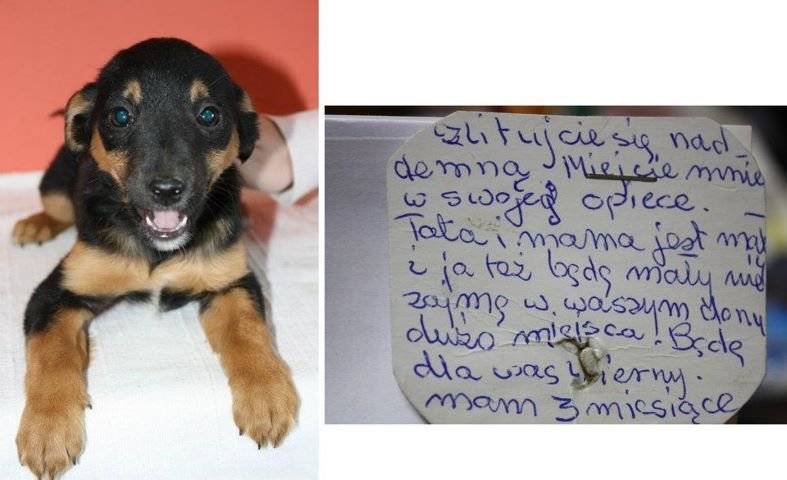 zlitujcie się nad
demną Miejcie mnie
w swojej opiece.
Tata i mama jest mał
i ja też będę mały nie
zajmę w waszym domu
dużo miejsca. Będę
dla was wierny.
mam 3 miesiące